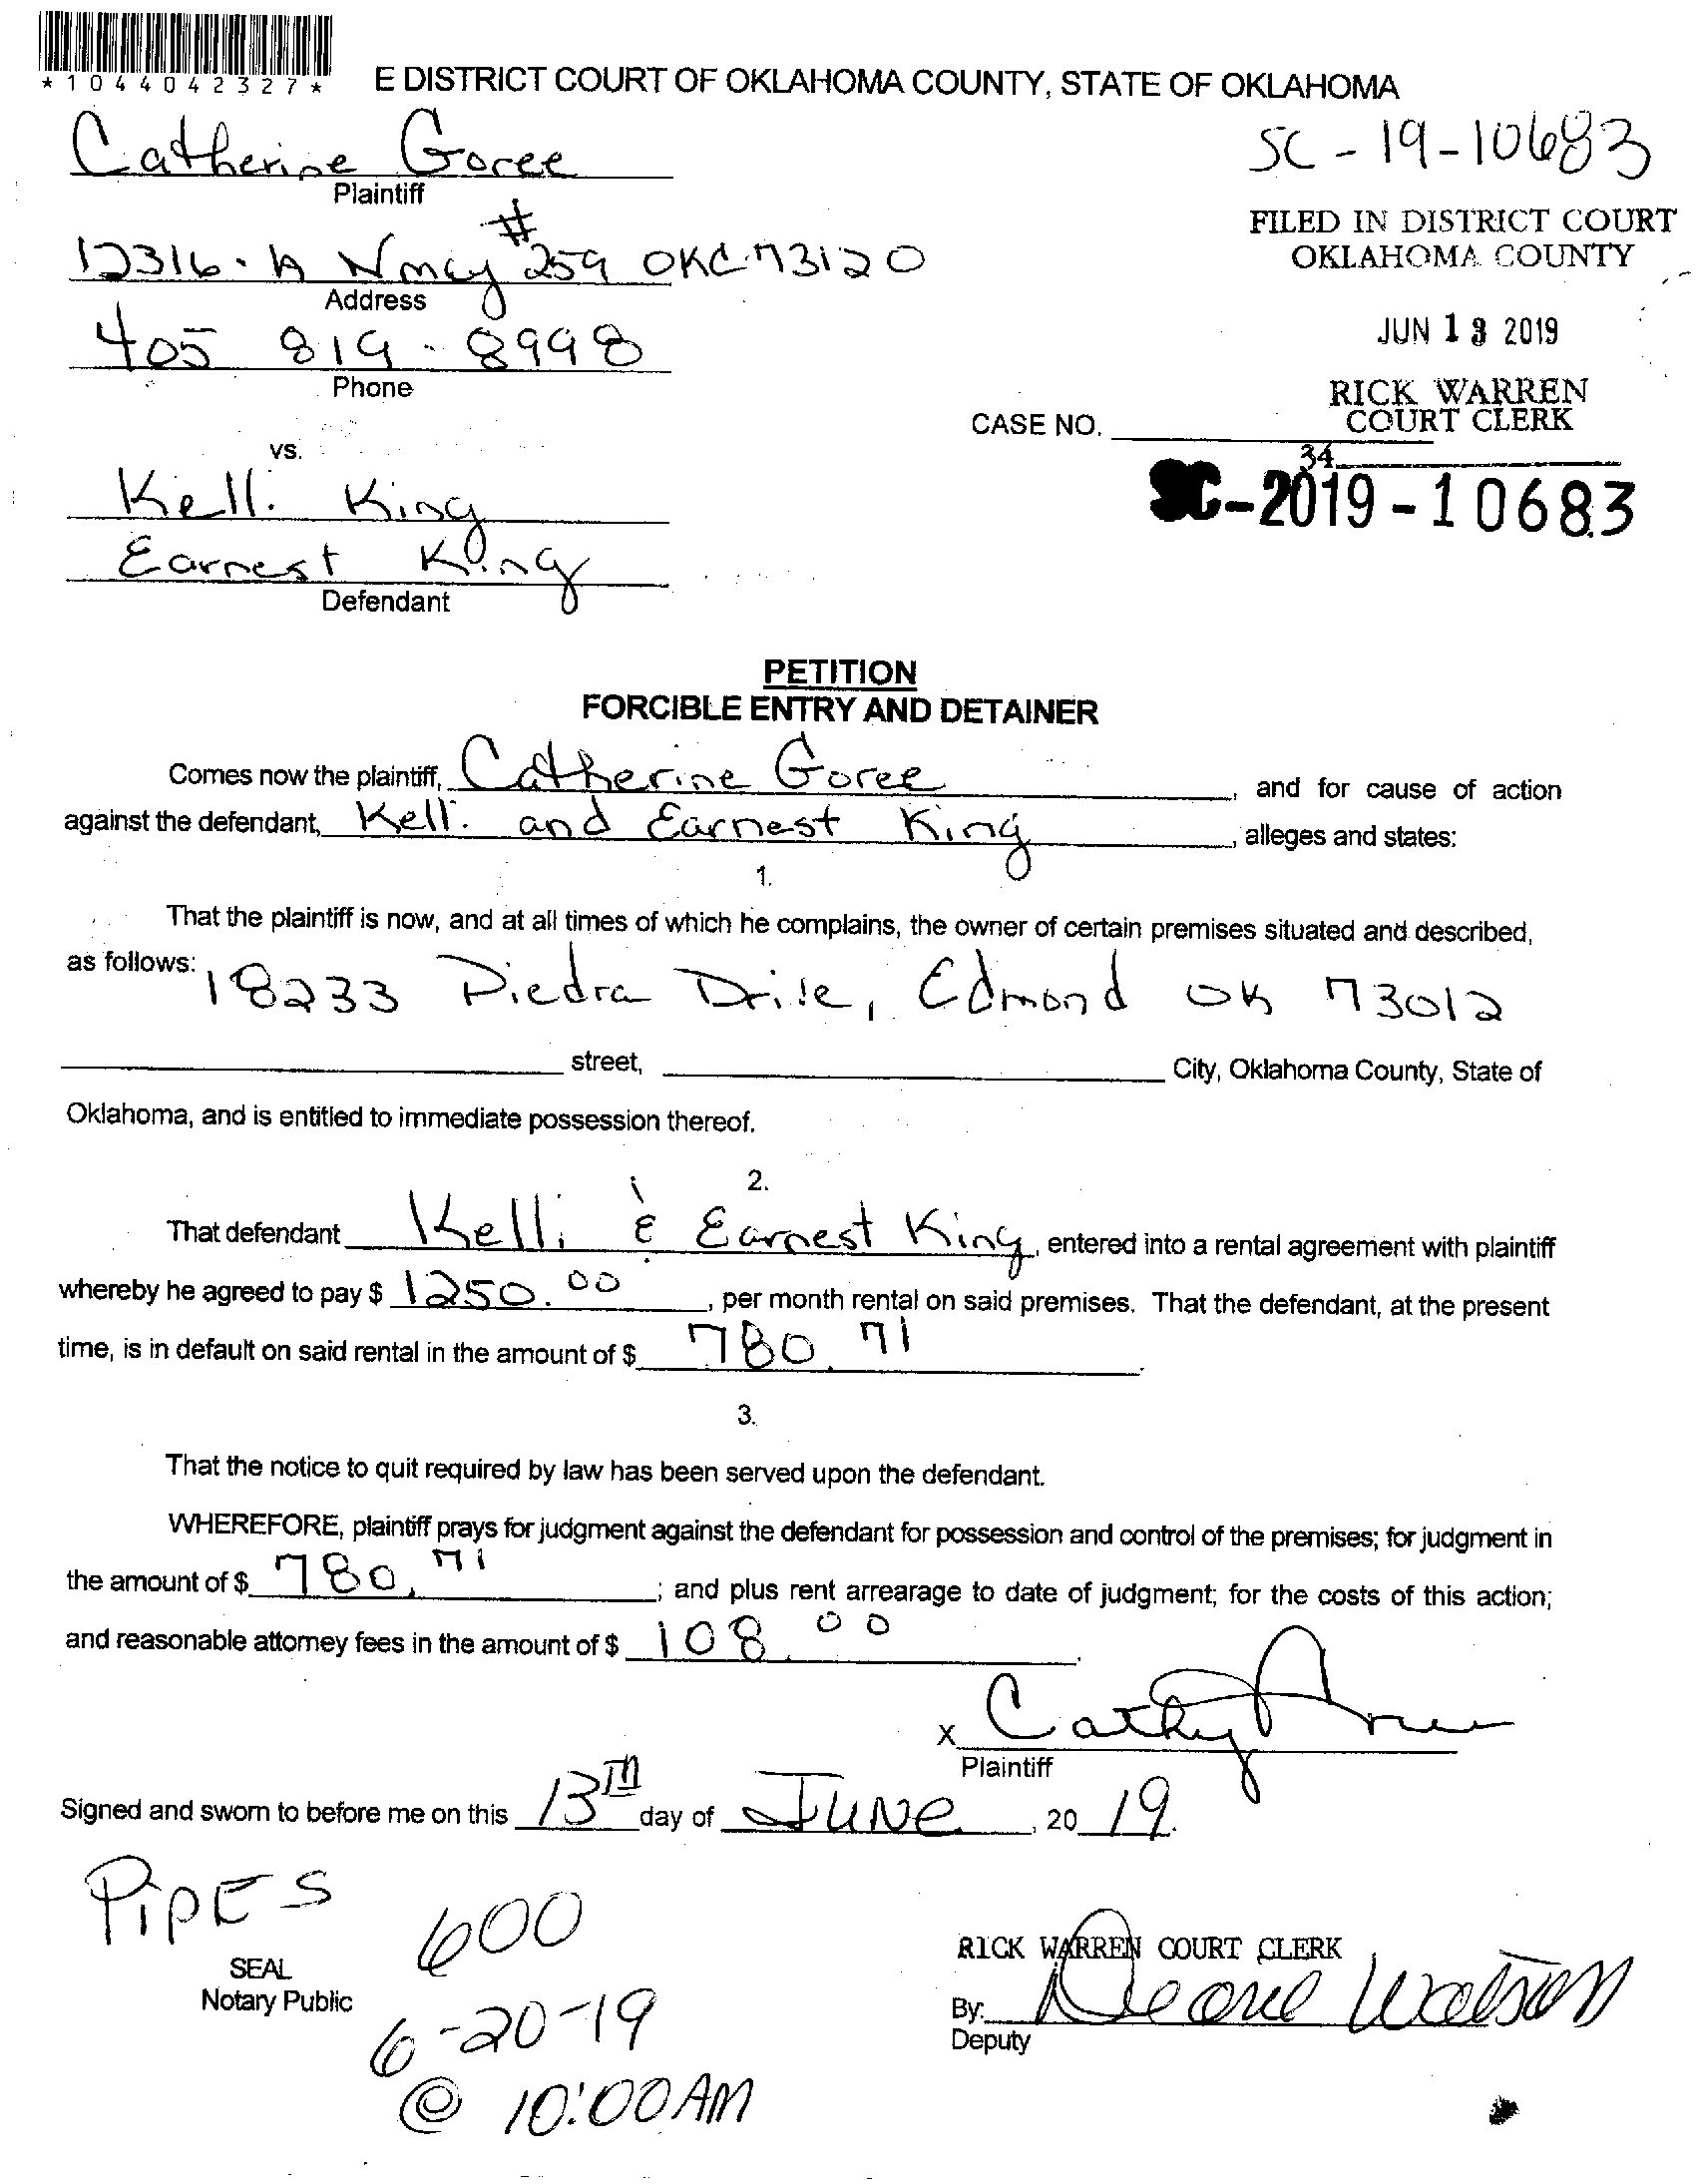 *1044042327*
E DISTRICT COURT OF OKLAHOMA COUNTY, STATE OF OKLAHOMA
Catherine Goree
Plaintiff
SC-19-10683
FILED IN DISTRICT COURT
OKLAHOMA COUNTY
12316-A Nmcy #259 OKC 73120
Address
JUN 13 2019
405 819-8998
Phone
RICK WARREN
COURT CLERK
CASE NO.
34
vs.
SC-2019-10683
Kelli King
Earnest King
Defendant
PETITION
FORCIBLE ENTRY AND DETAINER
Comes now the plaintiff, Catherine Goree, and for cause of action
against the defendant, Kelli and Earnest King, alleges and states:
1.
That the plaintiff is now, and at all times of which he complains, the owner of certain premises situated and described,
as follows: 18233 Piedra Drive, Edmond OK 73012
street, City, Oklahoma County, State of
Oklahoma, and is entitled to immediate possession thereof.
2.
That defendant Kelli & Earnest King, entered into a rental agreement with plaintiff
whereby he agreed to pay $ 1250.00, per month rental on said premises. That the defendant, at the present
time, is in default on said rental in the amount of $ 780.71.
3.
That the notice to quit required by law has been served upon the defendant.
WHEREFORE, plaintiff prays for judgment against the defendant for possession and control of the premises; for judgment in
the amount of $ 780.71; and plus rent arrearage to date of judgment; for the costs of this action;
and reasonable attorney fees in the amount of $ 108.00.
X Cathy Goree
Plaintiff
Signed and sworn to before me on this 13TH day of JUNE, 2019.
PIPES
600
SEAL
Notary Public
6-20-19
@ 10:00AM
RICK WARREN COURT CLERK
By: Deane Watson
Deputy